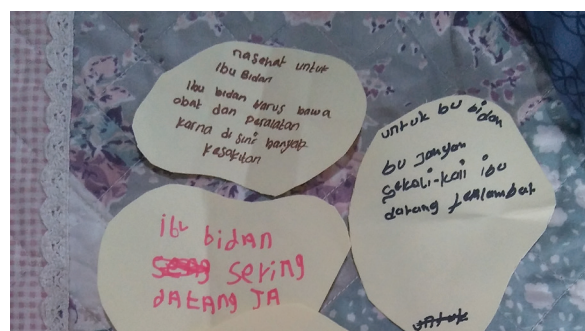 nasehat untuk
ibu Bidan
ibu bidan harus bawa
obat dan peralatan
karna di sini banyak
kesakitan
untuk bu bidan
bu jangan
sekali-kali ibu
datang terlambat
untuk
itu bidan
sering
datang ja